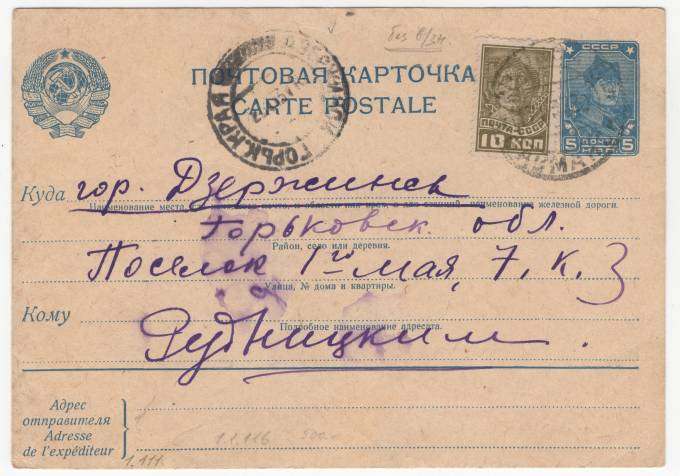 без в/зн.
ПОЧТОВАЯ КАРТОЧКА
CARTE POSTALE
ДЗЕРЖИНСК
ГОРЬК. КРАЙ
ПОЧТА-СССР
10 КОП
СССР
5 ПОЧТА 5
КОП.
Куда гор. Дзержинск
Наименование места, наименование железной дороги.
Горьковск. обл.
Район, село или деревня.
Поселок 1го Мая, 7, к. 3
Улица, № дома и квартиры.
Кому
Подробное наименование адресата.
Рудницким.
Адрес
отправителя
Adresse
de l'expéditeur
1.1.116
1.111